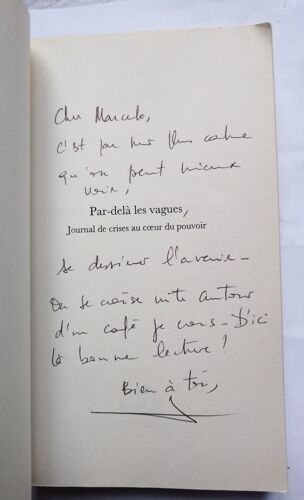 Cher Marcelo,
c'est par mer plus calme
qu'on peut mieux
voir,
Par-delà les vagues,
Journal de crises au cœur du pouvoir
se dessiner l'avenir –
On se croise vite autour
d'un café je crois – D'ici
là bonne lecture !
Bien à toi,